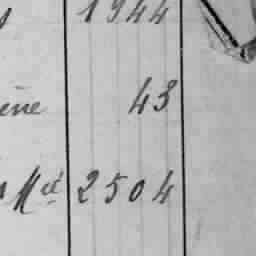 1944
ène 43
Mel 2504